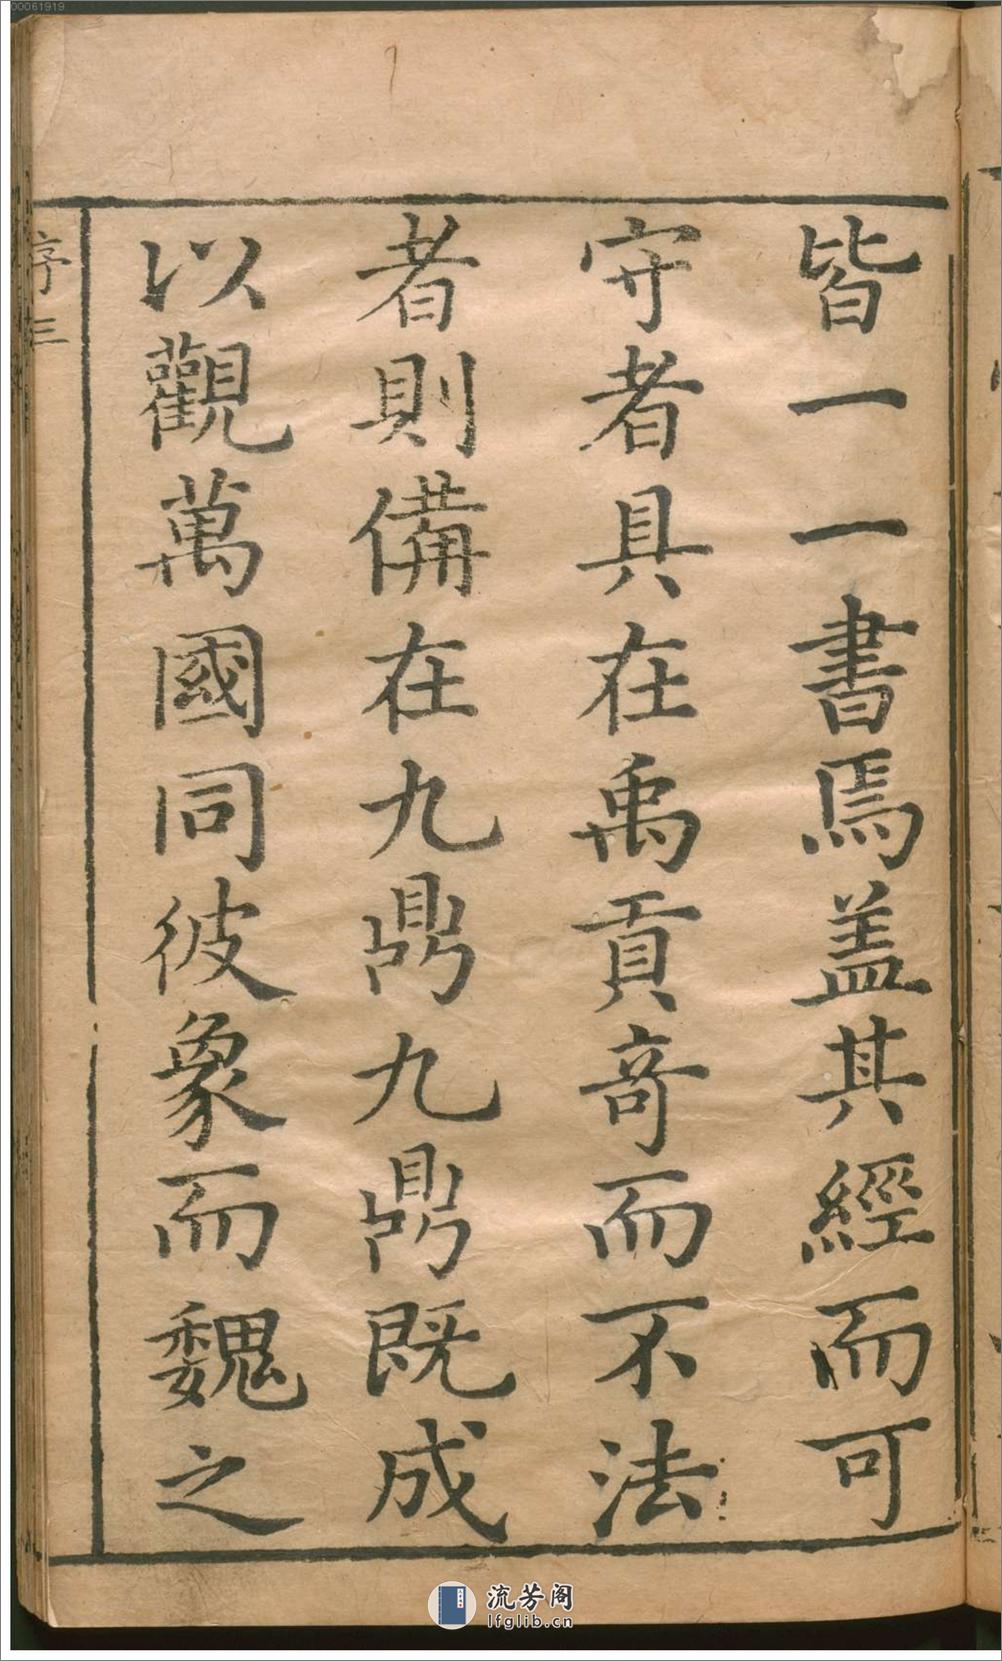 00061919
皆一一書焉盖其經而可
守者具在禹貢竒而不法
者則備在九鼎九鼎既成
以觀萬國同彼象而魏之
序三
流芳阁
lfglib.cn